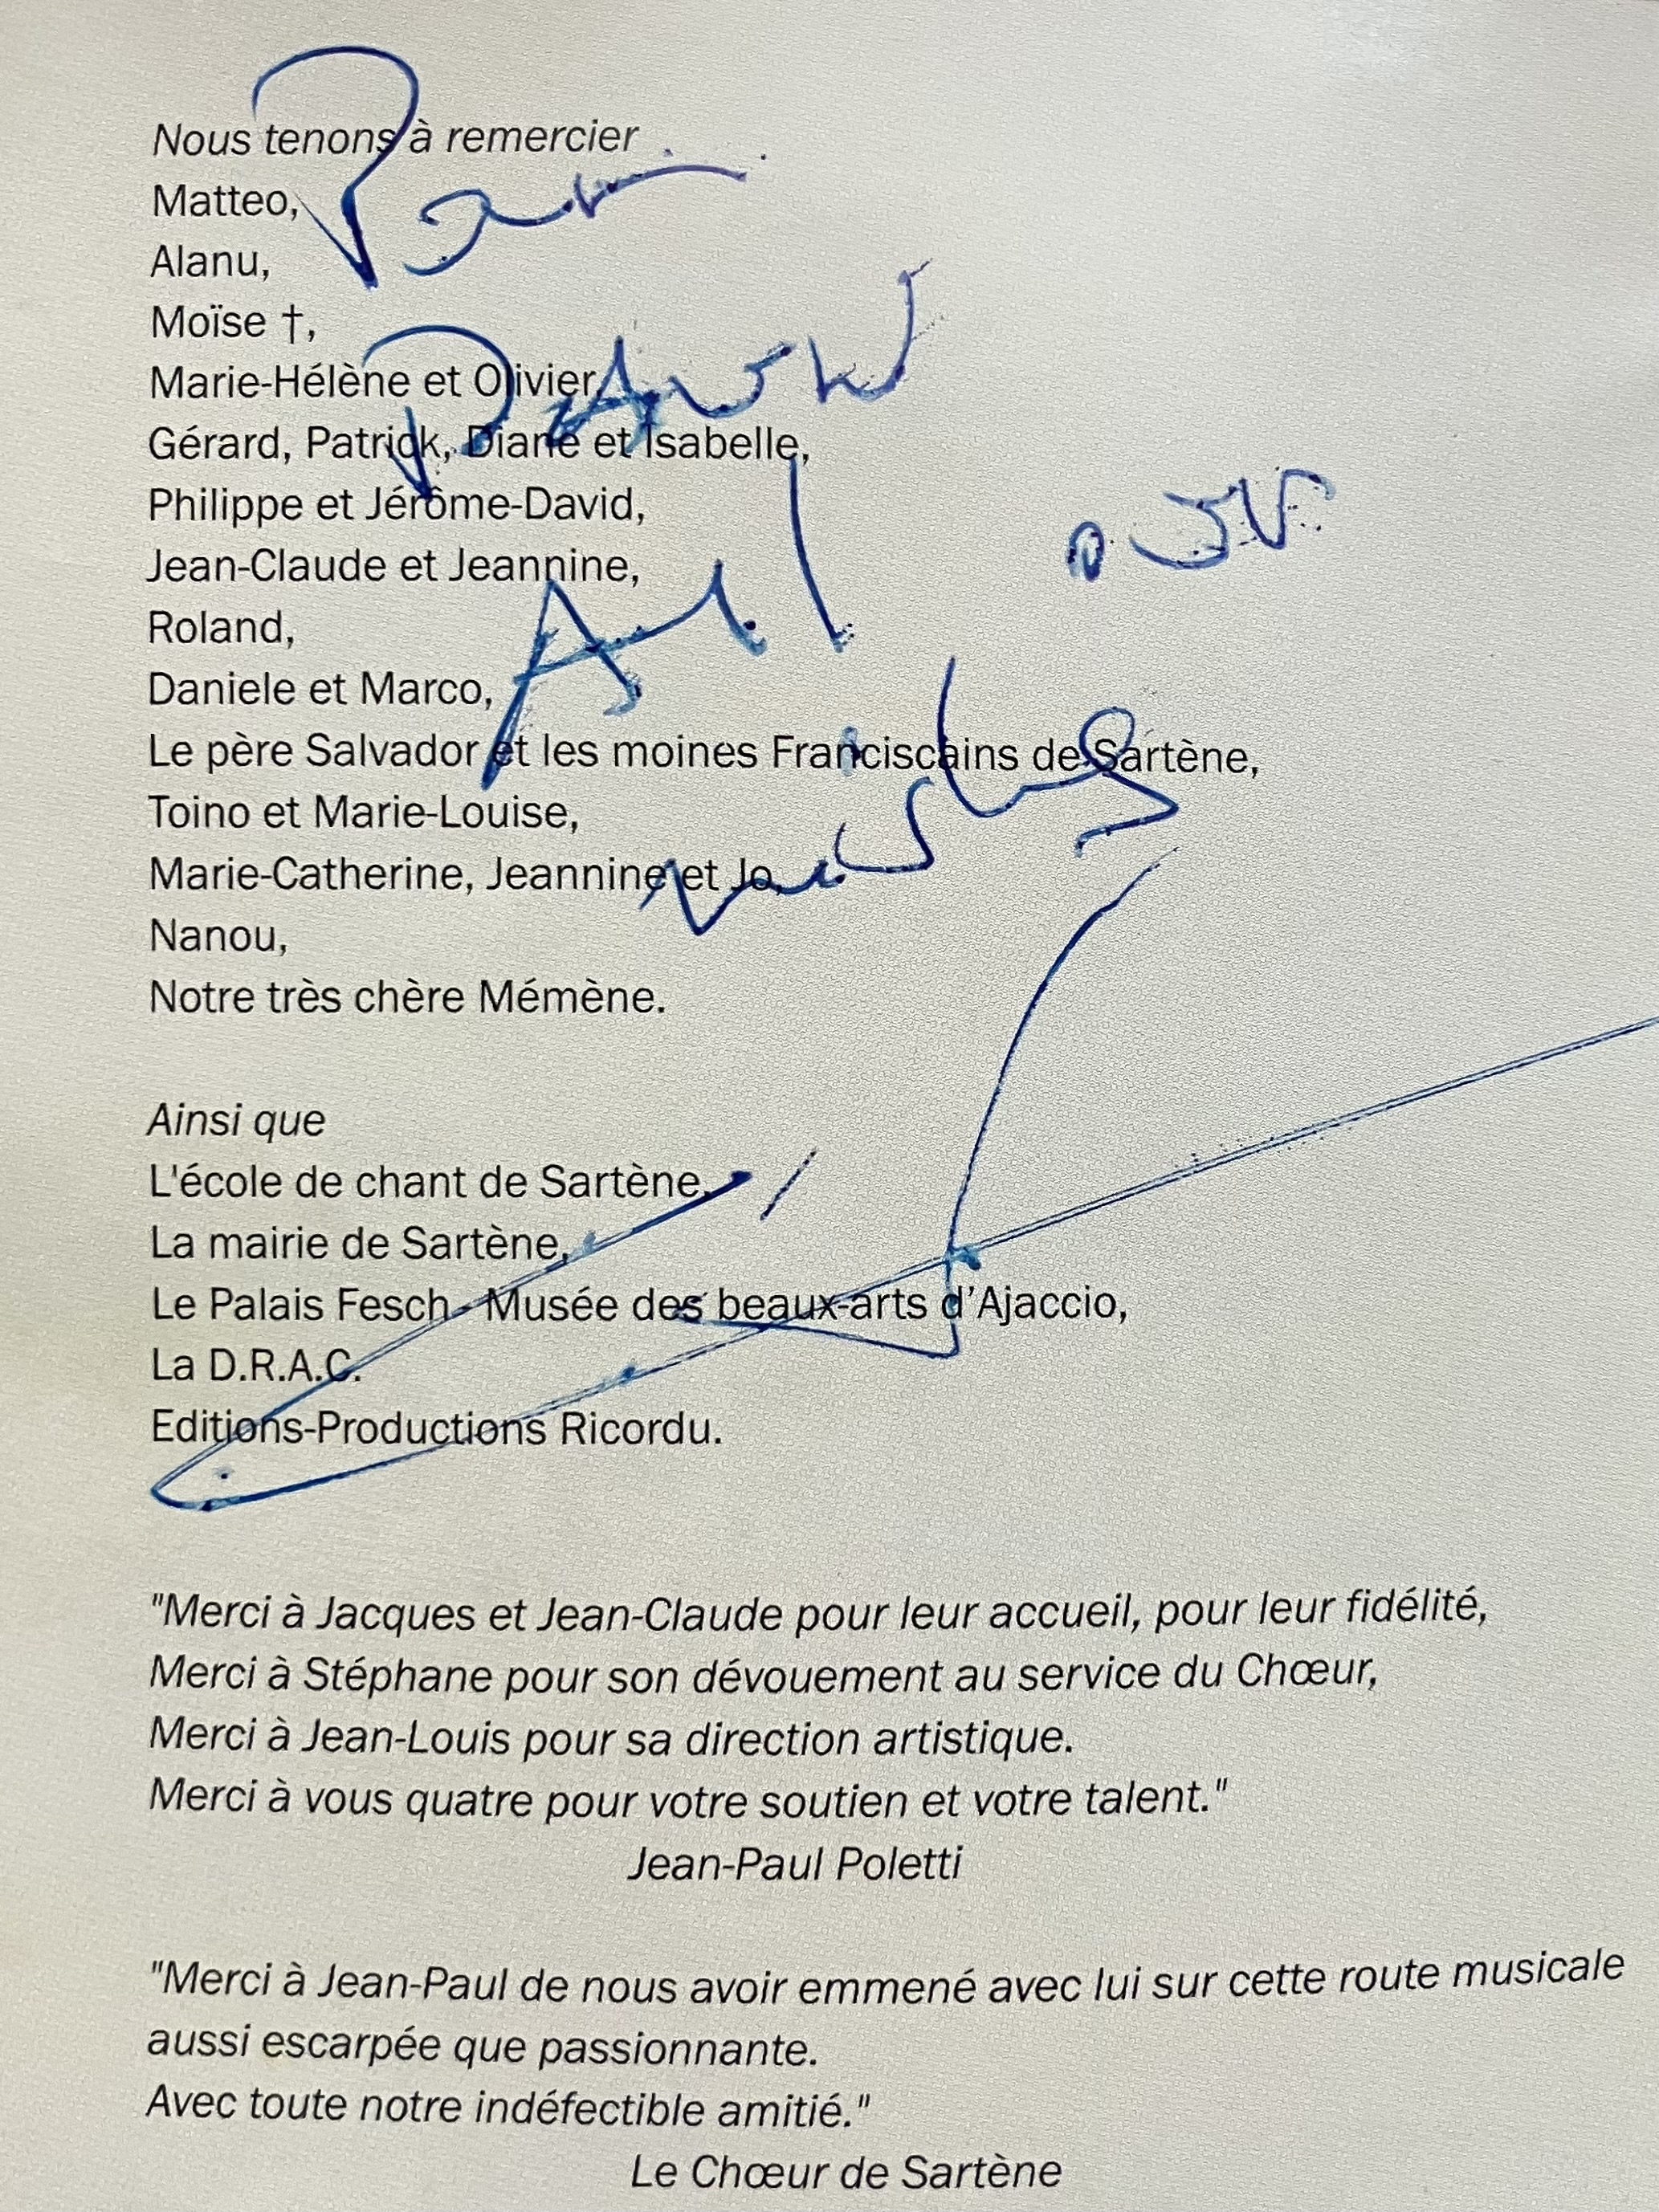 Nous tenons à remercier
Matteo,
Alanu,
Moïse †,
Marie-Hélène et Olivier,
Gérard, Patrick, Diane et Isabelle,
Philippe et Jérôme-David,
Jean-Claude et Jeannine,
Roland,
Daniele et Marco,
Le père Salvador et les moines Franciscains de Sartène,
Toino et Marie-Louise,
Marie-Catherine, Jeannine et Jo,
Nanou,
Notre très chère Mémène.
Ainsi que
L'école de chant de Sartène,
La mairie de Sartène,
Le Palais Fesch - Musée des beaux-arts d’Ajaccio,
La D.R.A.C.
Editions-Productions Ricordu.
"Merci à Jacques et Jean-Claude pour leur accueil, pour leur fidélité,
Merci à Stéphane pour son dévouement au service du Chœur,
Merci à Jean-Louis pour sa direction artistique.
Merci à vous quatre pour votre soutien et votre talent."
Jean-Paul Poletti
"Merci à Jean-Paul de nous avoir emmené avec lui sur cette route musicale
aussi escarpée que passionnante.
Avec toute notre indéfectible amitié."
Le Chœur de Sartène